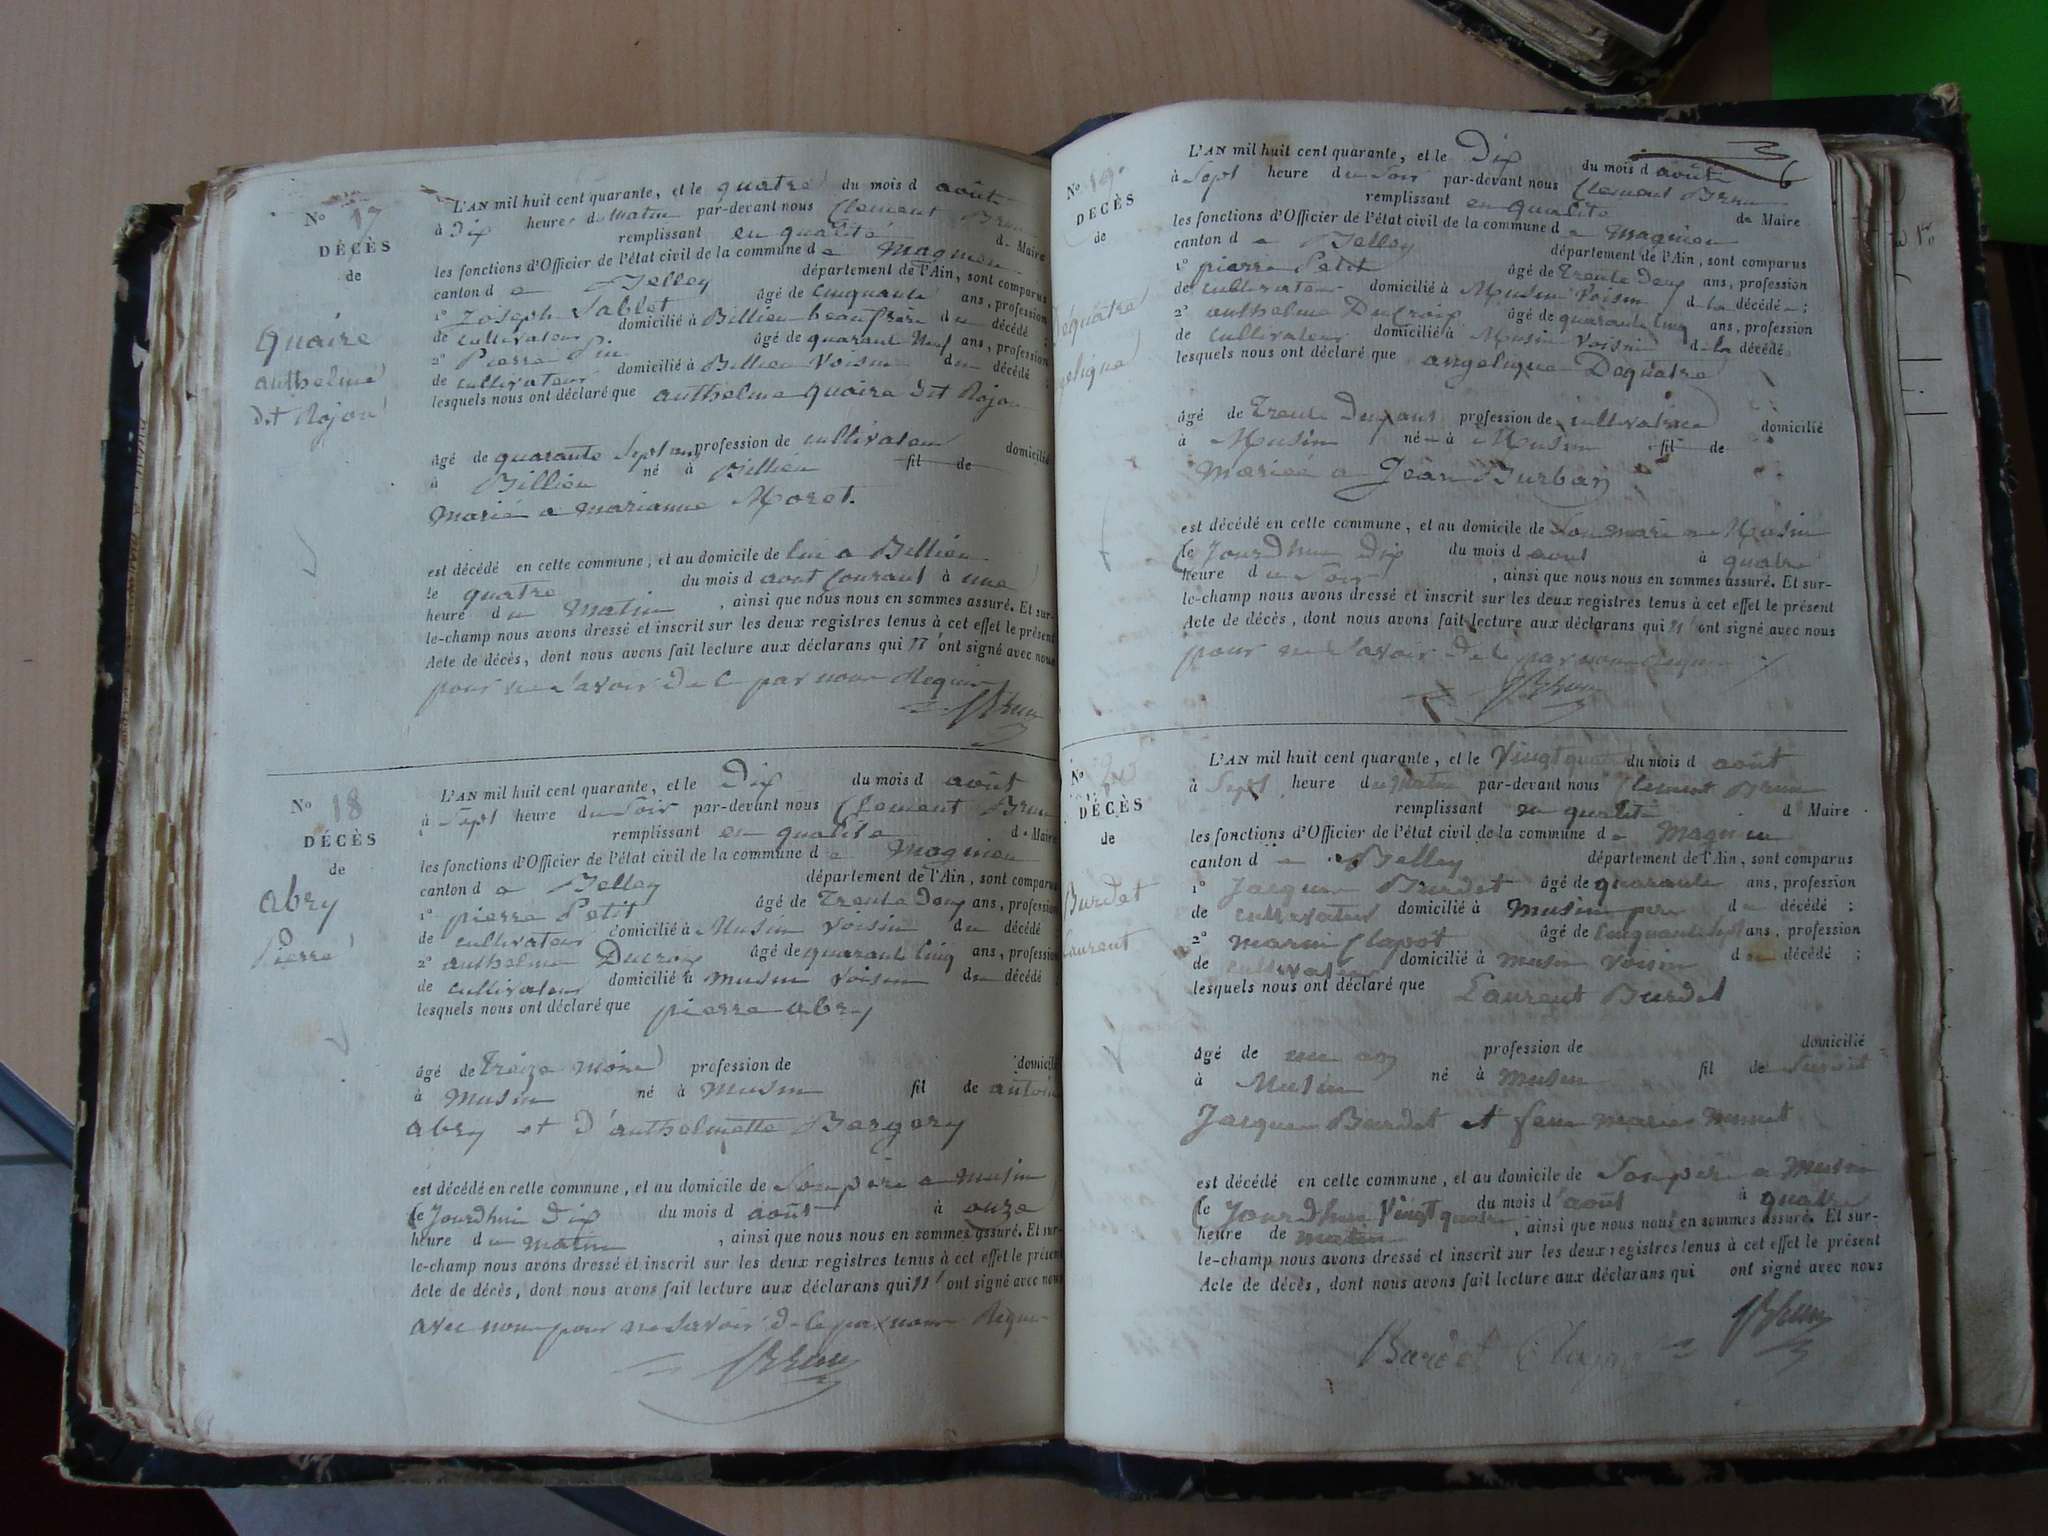 N° 17
DÉCÈS
de
Quaire
anthelme
dit Rojon
L'AN mil huit cent quarante, et le quatre du mois d août
à Dix heures du Matin par-devant nous Clement Brun
remplissant en qualité de Maire
les fonctions d'Officier de l'état civil de la commune de Magnieu
canton de Belley département de l'Ain, sont comparus
1° Joseph Sablet âgé de Cinquante ans, profession
de cultivateur domicilié à Billieu beaufrère du décédé ;
2° Pierre Pin âgé de quarant Neuf ans, profession
de cultivateur domicilié à Billieu Voisin du décédé ;
lesquels nous ont déclaré que anthelme Quaire dit Rojon
âgé de quarante Sept ans profession de cultivateur domicilié
à Billieu né à Billieu fil de
Marié a marianne Moret.
est décédé en cette commune, et au domicile de lui a Billieu
le quatre du mois d aout Courant à une
heure du Matin, ainsi que nous nous en sommes assuré. Et sur-
le-champ nous avons dressé et inscrit sur les deux registres tenus à cet effet le présent
Acte de décès, dont nous avons fait lecture aux déclarans qui n'ont signé avec nous
pour ne Savoir de ce par nous Requis
Brun
N° 18
DÉCÈS
de
abry
Pierre
L'AN mil huit cent quarante, et le Dix du mois d août
à Sept heure du Soir par-devant nous Clement Brun
remplissant en qualité de Maire
les fonctions d'Officier de l'état civil de la commune de Magnieu
canton de Belley département de l'Ain, sont comparus
1° pierre Petit âgé de Trente Deux ans, profession
de cultivateur domicilié à Musin Voisin du décédé
2° anthelme Ducroix âgé de quarante Cinq ans, profession
de cultivateur domicilié à musin voisin du décédé ;
lesquels nous ont déclaré que pierre abry
âgé de Treize mois profession de domicilié
à Musin né à Musin fil de antoine
abry et d'anthelmette Bergery
est décédé en cette commune, et au domicile de Son père a Musin
le Jourdhui dix du mois d août à onze
heure du matin, ainsi que nous nous en sommes assuré. Et sur-
le-champ nous avons dressé et inscrit sur les deux registres tenus à cet effet le présent
Acte de décès, dont nous avons fait lecture aux déclarans qui n'ont signé avec nous
avec nous pour ne Savoir de ce par nous Requis
Brun
N° 19
DÉCÈS
de
Dequatre
L'AN mil huit cent quarante, et le Dix du mois d août
à Sept heure du Soir par-devant nous Clement Brun
remplissant en qualité de Maire
les fonctions d'Officier de l'état civil de la commune de Magnieu
canton de Belley département de l'Ain, sont comparus
1° pierre Petit âgé de Trente Deux ans, profession
de cultivateur domicilié à Musin Voisin de la décédée ;
2° anthelme Ducroix âgé de quarante Cinq ans, profession
de cultivateur domicilié à Musin voisin de la décédé
lesquels nous ont déclaré que angelique Dequatre
âgé de Trente Deux ans profession de cultivatrice domicilié
à Musin née à Musin fil de
Mariée a Jean Burban
est décédé en cette commune, et au domicile de Son mari a Musin
le Jourdhui Dix du mois d aout à quatre
heure du Soir, ainsi que nous nous en sommes assuré. Et sur-
le-champ nous avons dressé et inscrit sur les deux registres tenus à cet effet le présent
Acte de décès, dont nous avons fait lecture aux déclarans qui n'ont signé avec nous
pour ne Savoir de ce par nous Requis
Brun
N° 20
DÉCÈS
de
Burdet
Laurent
L'AN mil huit cent quarante, et le Vingt quatre du mois d août
à Sept heure du Matin par-devant nous Clement Brun
remplissant en qualité d Maire
les fonctions d'Officier de l'état civil de la commune de Magnieu
canton de Belley département de l'Ain, sont comparus
1° Jacques Burdet âgé de quarante ans, profession
de cultivateur domicilié à Musin père du décédé ;
2° marin Clapot âgé de Cinquante Sept ans, profession
de cultivateur domicilié à musin voisin du décédé ;
lesquels nous ont déclaré que Laurent Burdet
âgé de un an profession de domicilié
à Musin né à Musin fil de
Jacques Burdet et feue marie
est décédé en cette commune, et au domicile de Son père a Musin
le Jourdhui Vingt quatre du mois d août à quatre
heure de matin, ainsi que nous nous en sommes assuré. Et sur-
le-champ nous avons dressé et inscrit sur les deux registres tenus à cet effet le présent
Acte de décès, dont nous avons fait lecture aux déclarans qui ont signé avec nous
Brun
Burdet